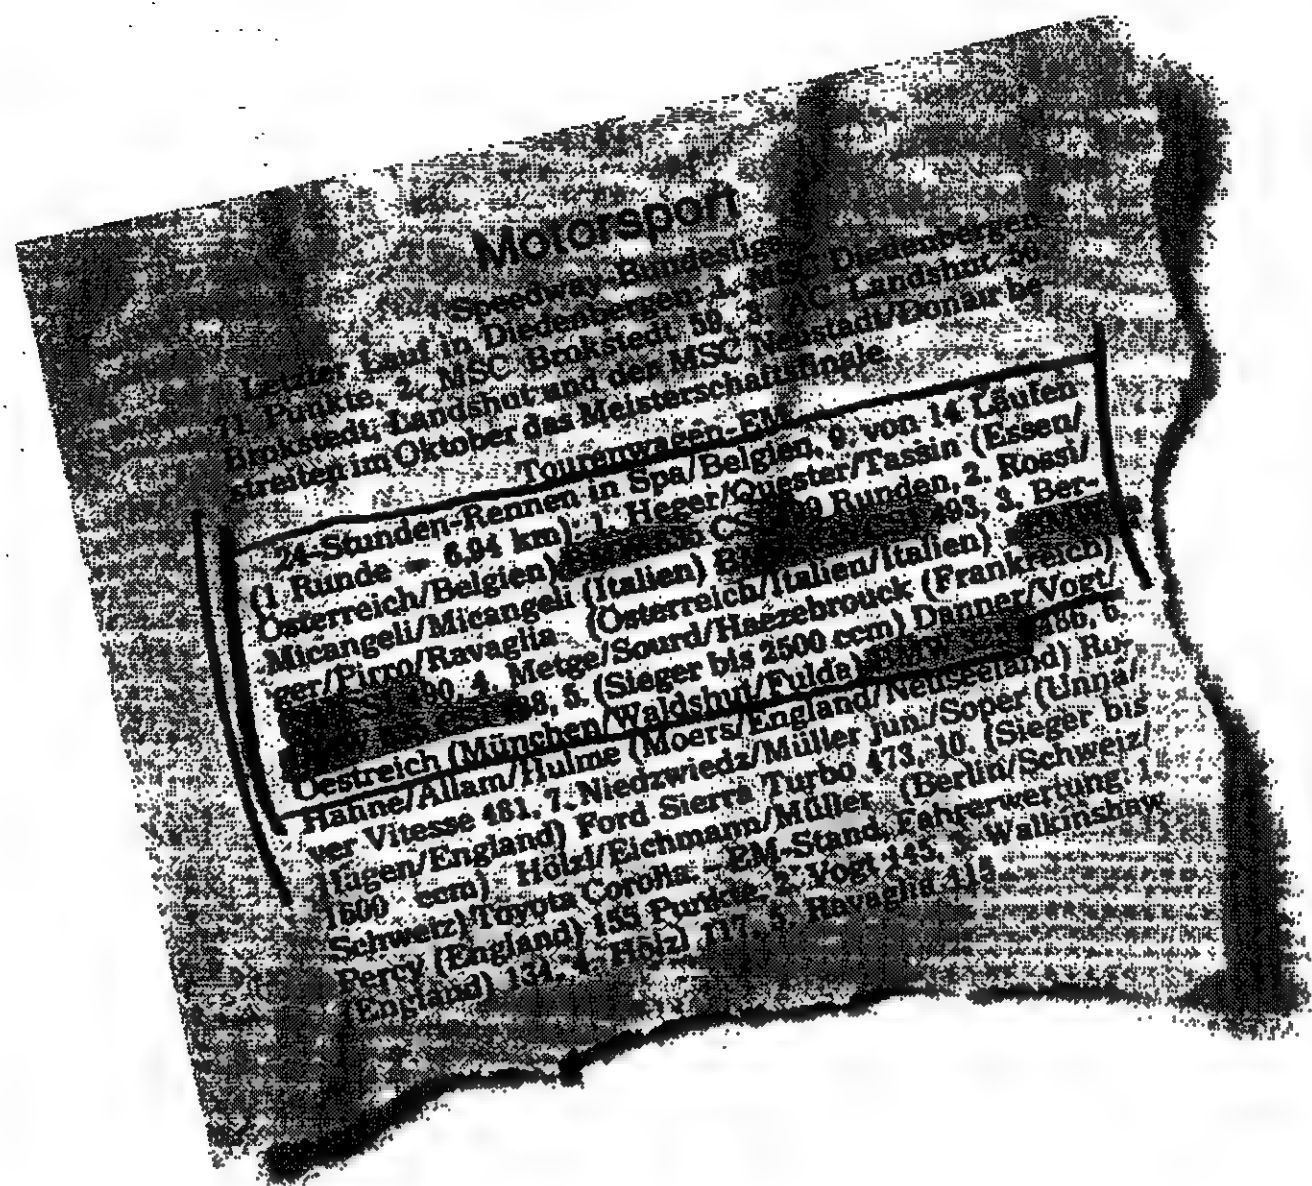 Motorsport
Speedway-Bundesliga
Letzter Lauf in Diedenbergen: 1. MSC Diedenbergen
71 Punkte, 2. MSC Brokstedt 59, 3. AC Landshut 50.
Brokstedt, Landshut und der MSC Neustadt/Donau be-
streiten im Oktober das Meisterschaftsfinale.
Tourenwagen-EM
24-Stunden-Rennen in Spa/Belgien, 9. von 14 Läufen
(1 Runde = 6,94 km): 1. Heger/Quester/Tassin (Essen/
Österreich/Belgien) Runden, 2. Rossi/
Micangeli/Micangeli (Italien) 493, 3. Ber-
ger/Pirro/Ravaglia (Österreich/Italien/Italien)
490, 4. Metge/Sourd/Haezebrouck (Frankreich)
5. (Sieger bis 2500 ccm) Danner/Vogt/
Oestreich (München/Waldshut/Fulda) BMW 486, 6.
Hahne/Allam/Hulme (Moers/England/Neuseeland) Ro-
ver Vitesse 481, 7. Niedzwiedz/Müller jun./Soper (Unna/
Hagen/England) Ford Sierra Turbo 473, 10. (Sieger bis
1600 ccm) Hölzl/Eichmann/Müller (Berlin/Schweiz/
Schweiz) Toyota Corolla. – EM-Stand, Fahrerwertung: 1.
Percy (England) 155 Punkte, 2. Vogt 145, 3. Walkinshaw
(England) 134, 4. Hölzl 117, 5. Ravaglia 115.